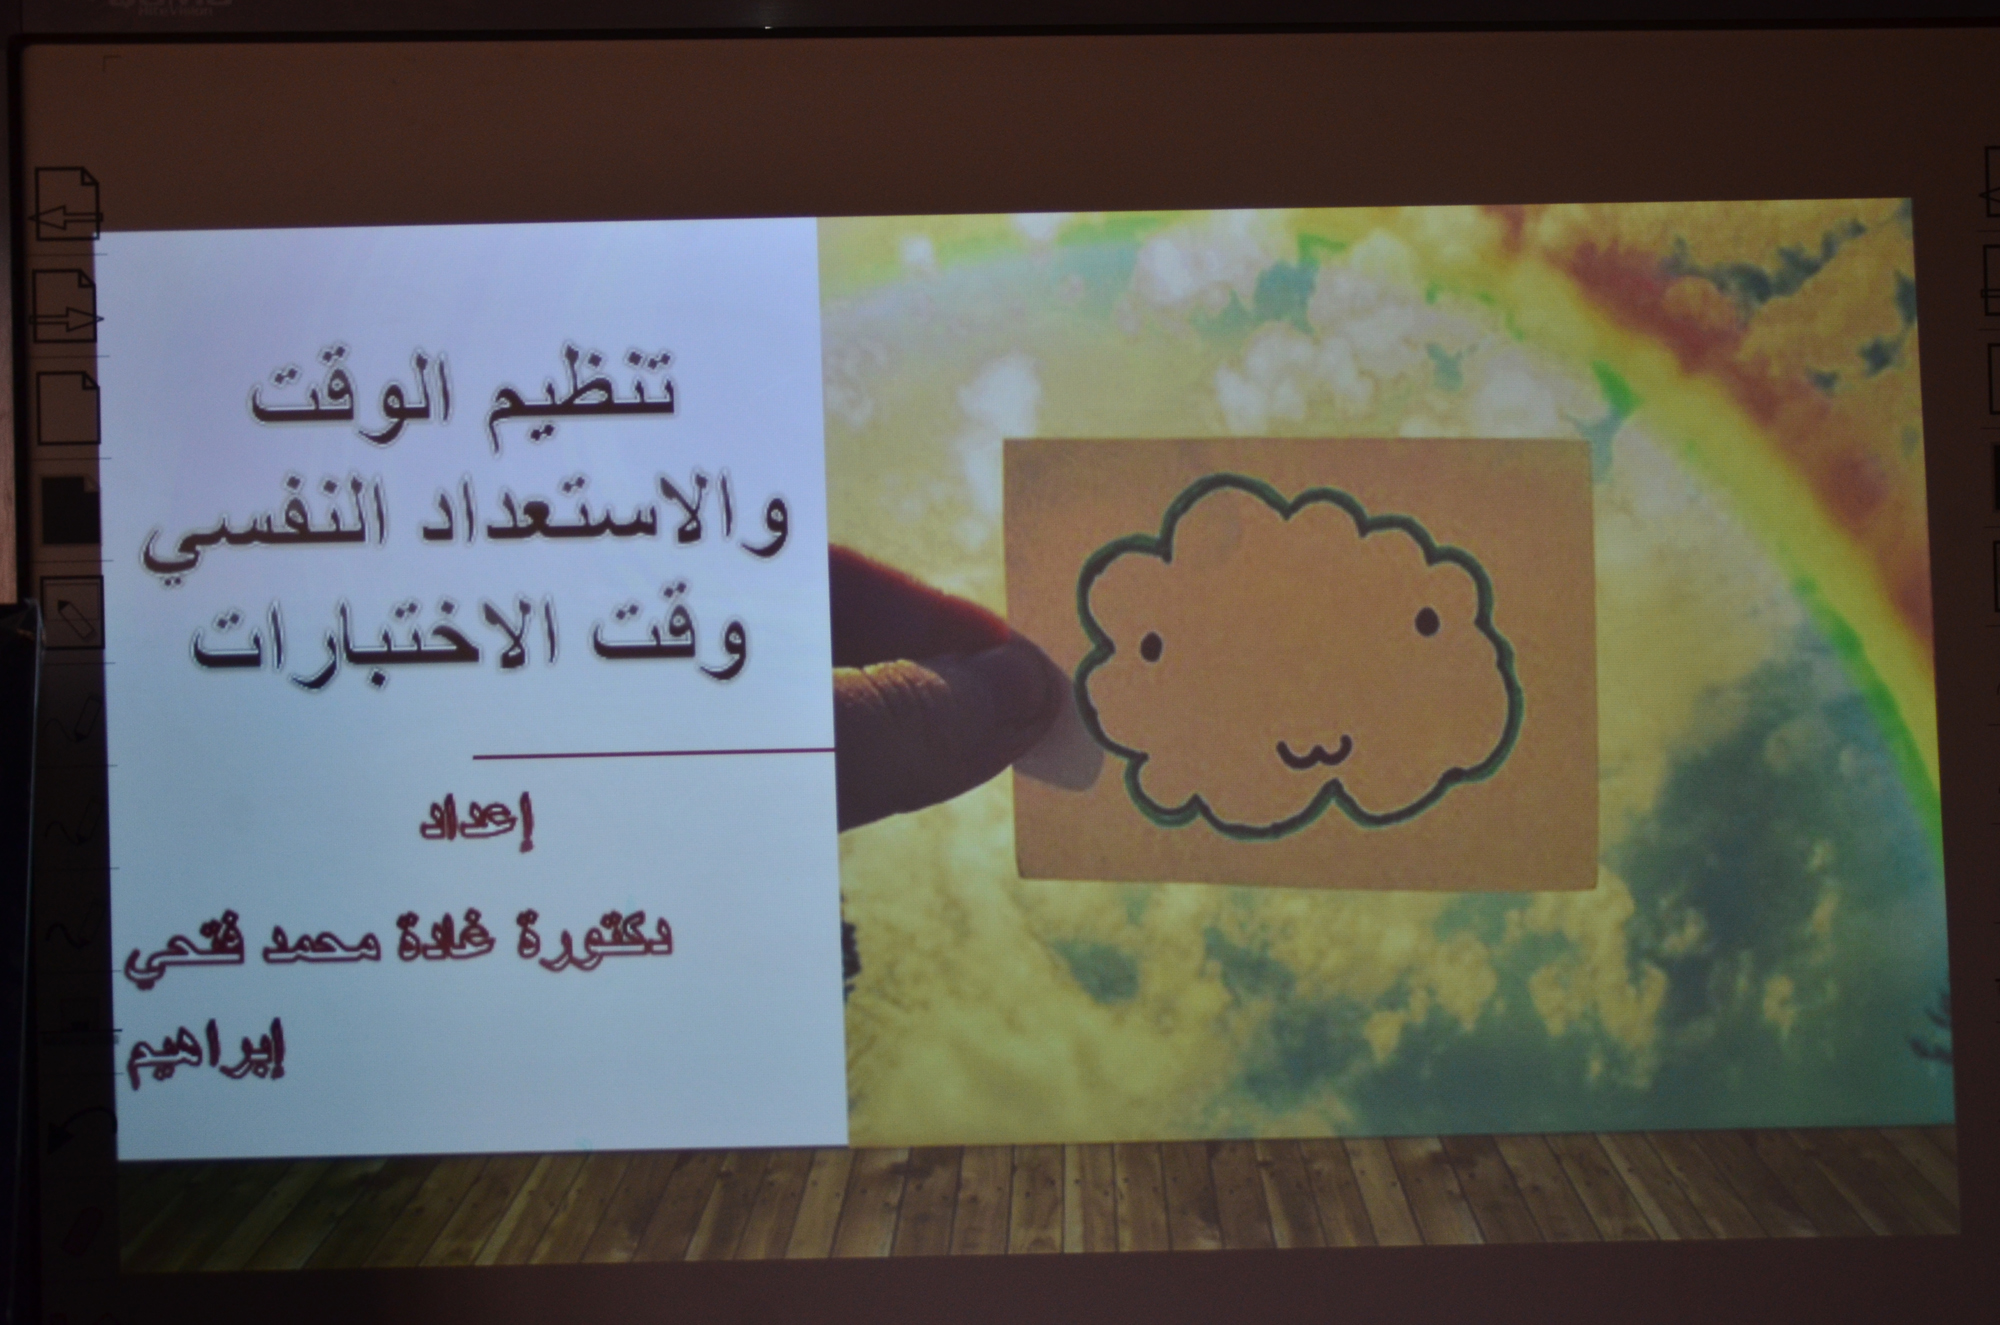 تنظيم الوقت
والاستعداد النفسي
وقت الاختبارات
إعداد
دكتورة غادة محمد فتحي
إبراهيم